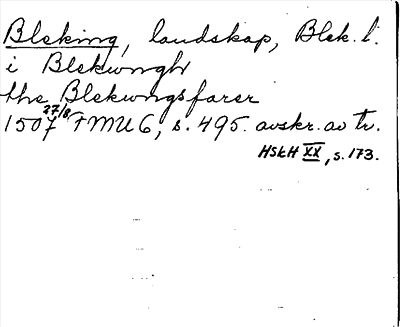 Bleking, landskap, Blek. l.
i Blekwngh
the Blekwngsfarer
1507 27/8 FMU 6, s. 495. avskr. av tr.
HSkH XX, s. 173.